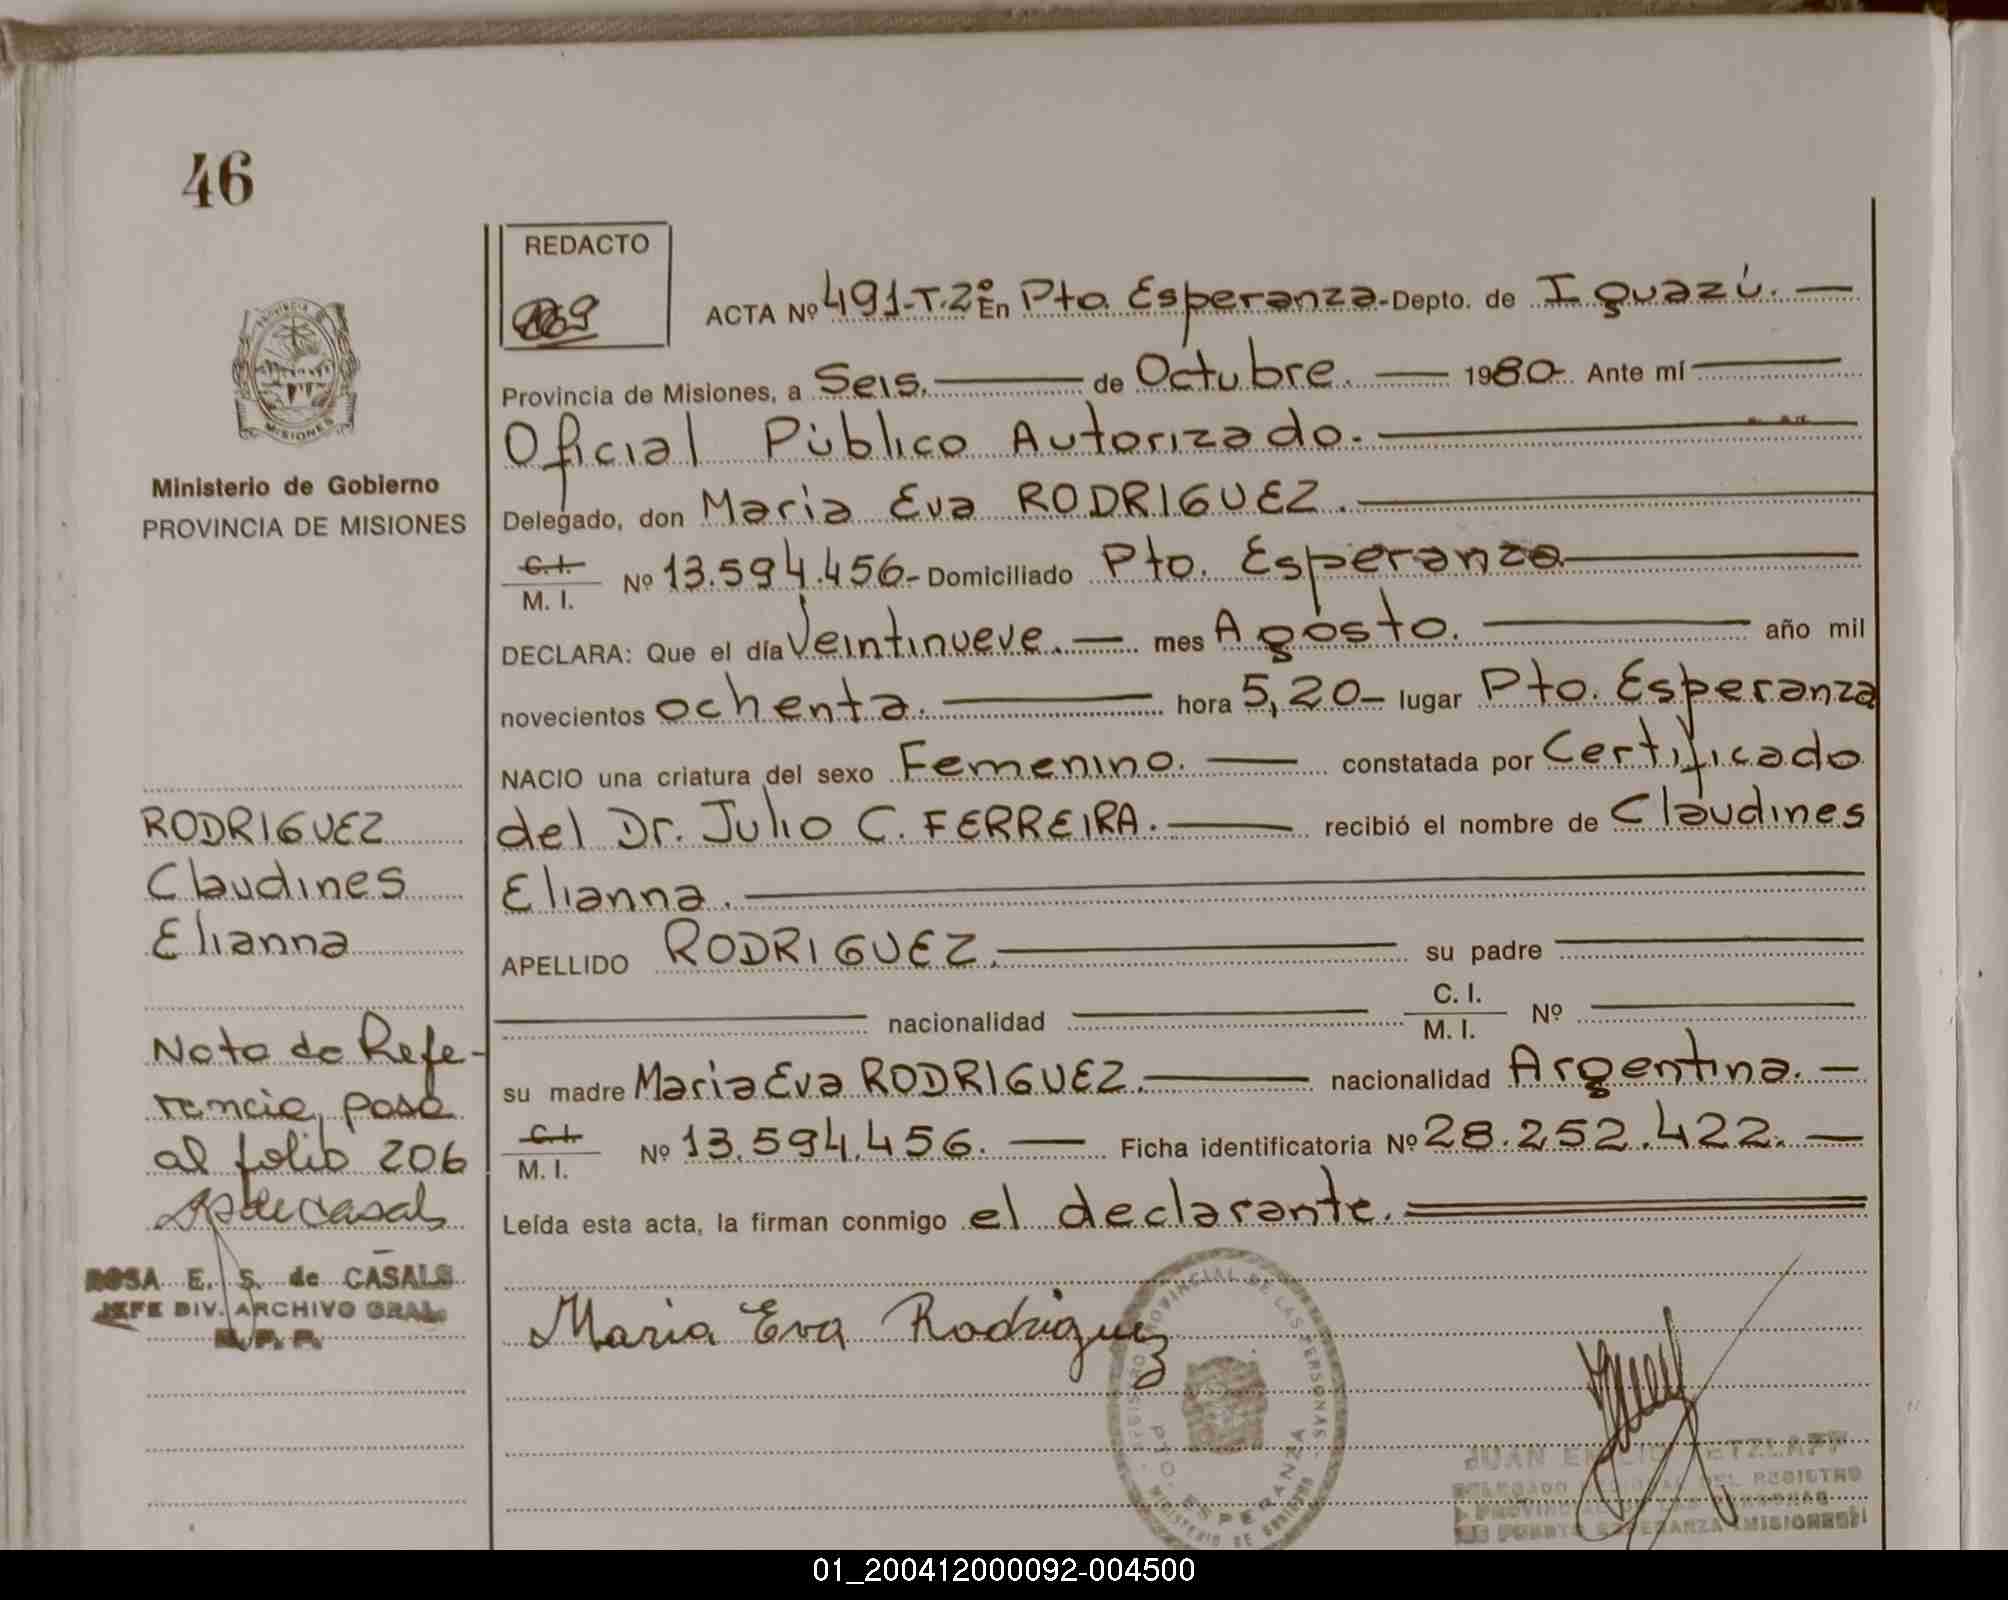 46
REDACTO
ACTA Nº 491-T.2º En Pto. Esperanza - Depto. de Iguazú. —
Provincia de Misiones, a Seis. — de Octubre. — 1980- Ante mí —
Oficial Público Autorizado. —
Delegado, don Maria Eva RODRIGUEZ. —
C.I.
M. I. Nº 13.594.456.- Domiciliado Pto. Esperanza —
DECLARA: Que el día Veintinueve. — mes Agosto. — año mil
novecientos ochenta. — hora 5,20- lugar Pto. Esperanza
NACIO una criatura del sexo Femenino. — constatada por Certificado
del Dr. Julio C. FERREIRA. — recibió el nombre de Claudines
Elianna. —
APELLIDO RODRIGUEZ. — su padre —
— nacionalidad — C. I.
M. I. Nº —
su madre Maria Eva RODRIGUEZ. — nacionalidad Argentina. —
C.I.
M. I. Nº 13.594.456. — Ficha identificatoria Nº 28.252.422. —
Leída esta acta, la firman conmigo el declarante.
Maria Eva Rodriguez
PROVINCIA
MISIONES
Ministerio de Gobierno
PROVINCIA DE MISIONES
RODRIGUEZ
Claudines
Elianna
Nota de Refe-
rencia, pasa
al folio 206
ROSA E. S. de CASALS
JEFE DIV. ARCHIVO GRAL.
R. P. P.
REGISTRO PROVINCIAL DE LAS PERSONAS
PTO. ESPERANZA
MINISTERIO DE GOBIERNO
JUAN
DELEGADO DEL REGISTRO
PROVINCIAL DE LAS PERSONAS
PUERTO ESPERANZA (MISIONES)
01_200412000092-004500